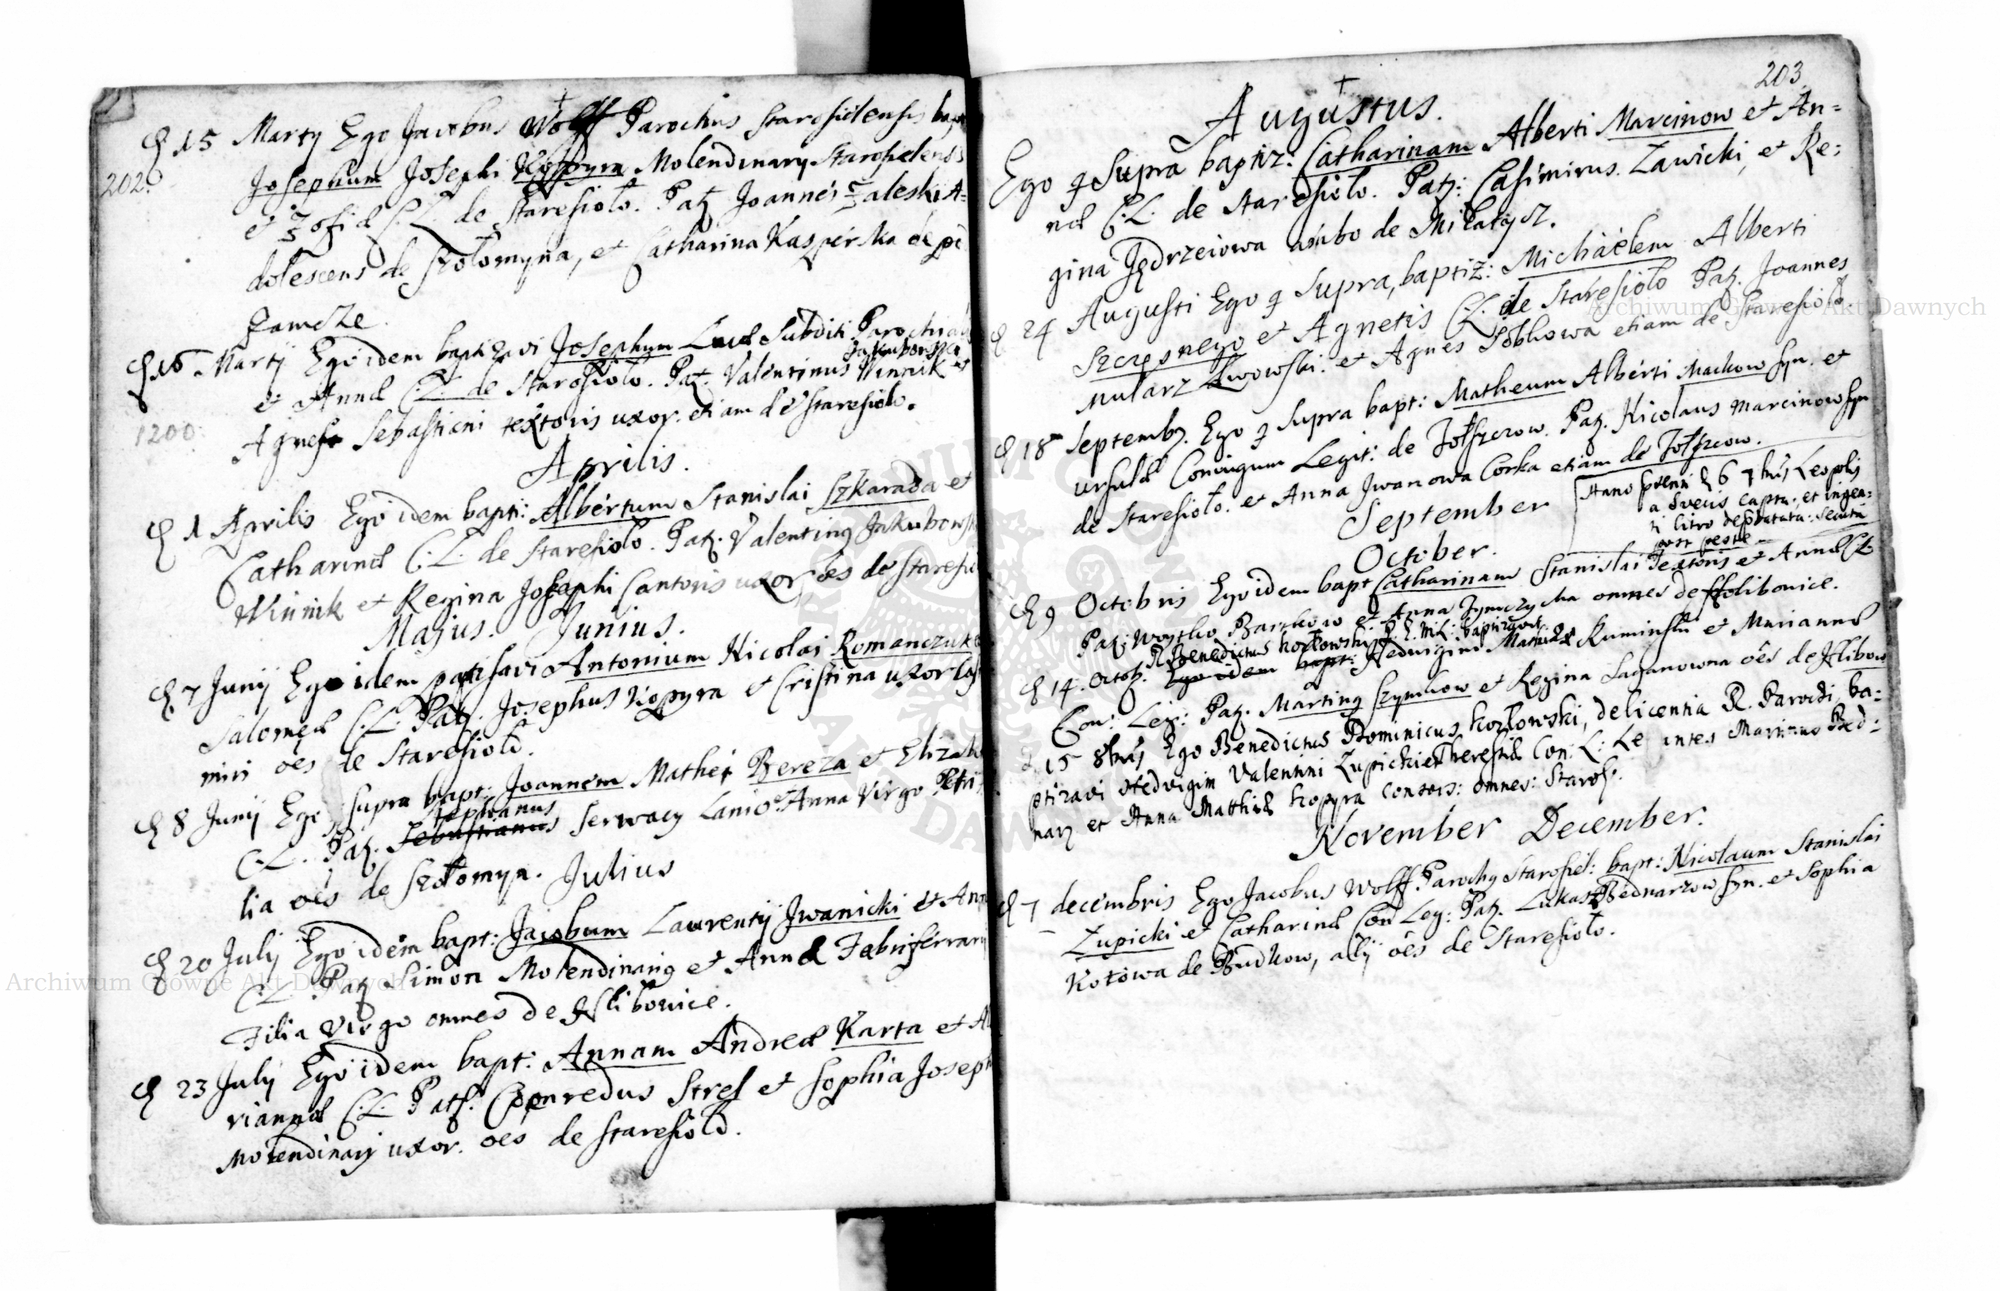 202.
d 15 Martij Ego Jacobus Wolff Parochus Staresiolensis bap
Josephum Josephi Kopyra Molendinarij Staresiolensis
et Zofiæ C: L: de Staresioło. Patr. Joannes Zaleski A=
dolescens de Szołomyna, et Catharina Kasperska de
Zamcze.
d 16 Martij Ego idem baptizavi Josephum Lucæ Subditi Parochi
Jakubowski
et Annæ C: L: de Staresioło. Pat. Valentinus Winnik et
Agnes Sebastiani textoris uxor. etiam de Staresioło.
1200.
Aprilis.
d 1 Aprilis Ego idem bapti: Albertum Stanislai Szkarada et
Catharinæ C: L: de Staresioło. Patr. Valentinq Jakubowski
Winnik et Regina Josephi Cantoris uxor, oẽs de Staresio
Majus. Junius.
d 7 Junij Ego idem Antonium Nicolai Romanczuk
Salomeæ C: L: Patr. Josephus Kopyra et Cristina uxor Cas
miri oẽs de Staresioło.
d 8 Junij Ego q supra bapt: Joannem Mathei Bereza et Elizab
Stephanus
C: L: Patr. Sebastianus Serwacy Lanio et Anna Virgo Petri
lia oẽs de Szołomyn. Julius
d 20 Julij Ego idem bapt: Jacobum Laurentij Jwanicki et Ann
C: L: Patr Simon Molendinariq et Annæ Fabri ferrarij
Filia Virgo omnes de Hlibowice.
d 23 Julij Ego idem bapt: Annam Andreæ Karta et M
riannæ C: L: Patr. Conredus Strel et Sophia Joseph
Molendinarij uxor. oẽs de Staresioło.
203
Augustus.
Ego q Supra baptiz: Catharinam Alberti Marcinow et An=
næ C: L: de Staresioło. Patr: Casimirus Zawicki, et Re:
gina Jędrzeiowa ambo de Mikatycz.
d 24 Augusti Ego q Supra, baptiz: Michaelem Alberti
Szczęsnego et Agnetis C: L: de Staresioło Patr. Joannes
mularz Lwowski. et Agnes Sobkowa etiam de Staresioło.
d 18 Septemb. Ego q Supra bapt: Matheum Alberti Mackow syn. et
Ursulæ Coniugum Legit: de Tołszczow. Patr. Nicolaus Marcinow syn
de Staresioło. et Anna Jwanowa Corka etiam de Tołszczow.
September
Anno 6 7bris Leopolis
a Svecis capta, et ingen=
ti litro depactata: Secuta
post peste
October.
d 9 Octobris Ego idem bapt Catharinam Stanislai Textoris et Annæ C L
Patr: Woytko Barzkow et Anna Tymczycha omnes de Hlibowice.
R. Benedictus Kozłowski baptizavit
d 14. Octob. Ego idem bapt: Hedvigim Ruminski et Mariannæ
Con: Leg: Patr. Martinq Szymkow et Regina Łaganowna oẽs de Hlibow
d. 15 8bris Ego Benedictus Dominicus Kozłowski, de licentia R. Parochi, ba=
ptizavi Hedvigim Valentini Zupickie Theresiæ Con: L: Levantes Marinus Bed=
narz et Anna Matthiæ Kopyra Consors: omnes: Staros.
November December.
d 7 decembris Ego Jacobus Wolff Parochq Starosiel: bapt: Nicolaum Stanislai
Zupicki et Catharinæ Con Leg: Patr. Lukasz Bednarzow syn. et Sophia
Kotowa de Budkow, alij oẽs de Staresioło.
Archiwum Główne Akt Dawnych
Archiwum Główne Akt Dawnych